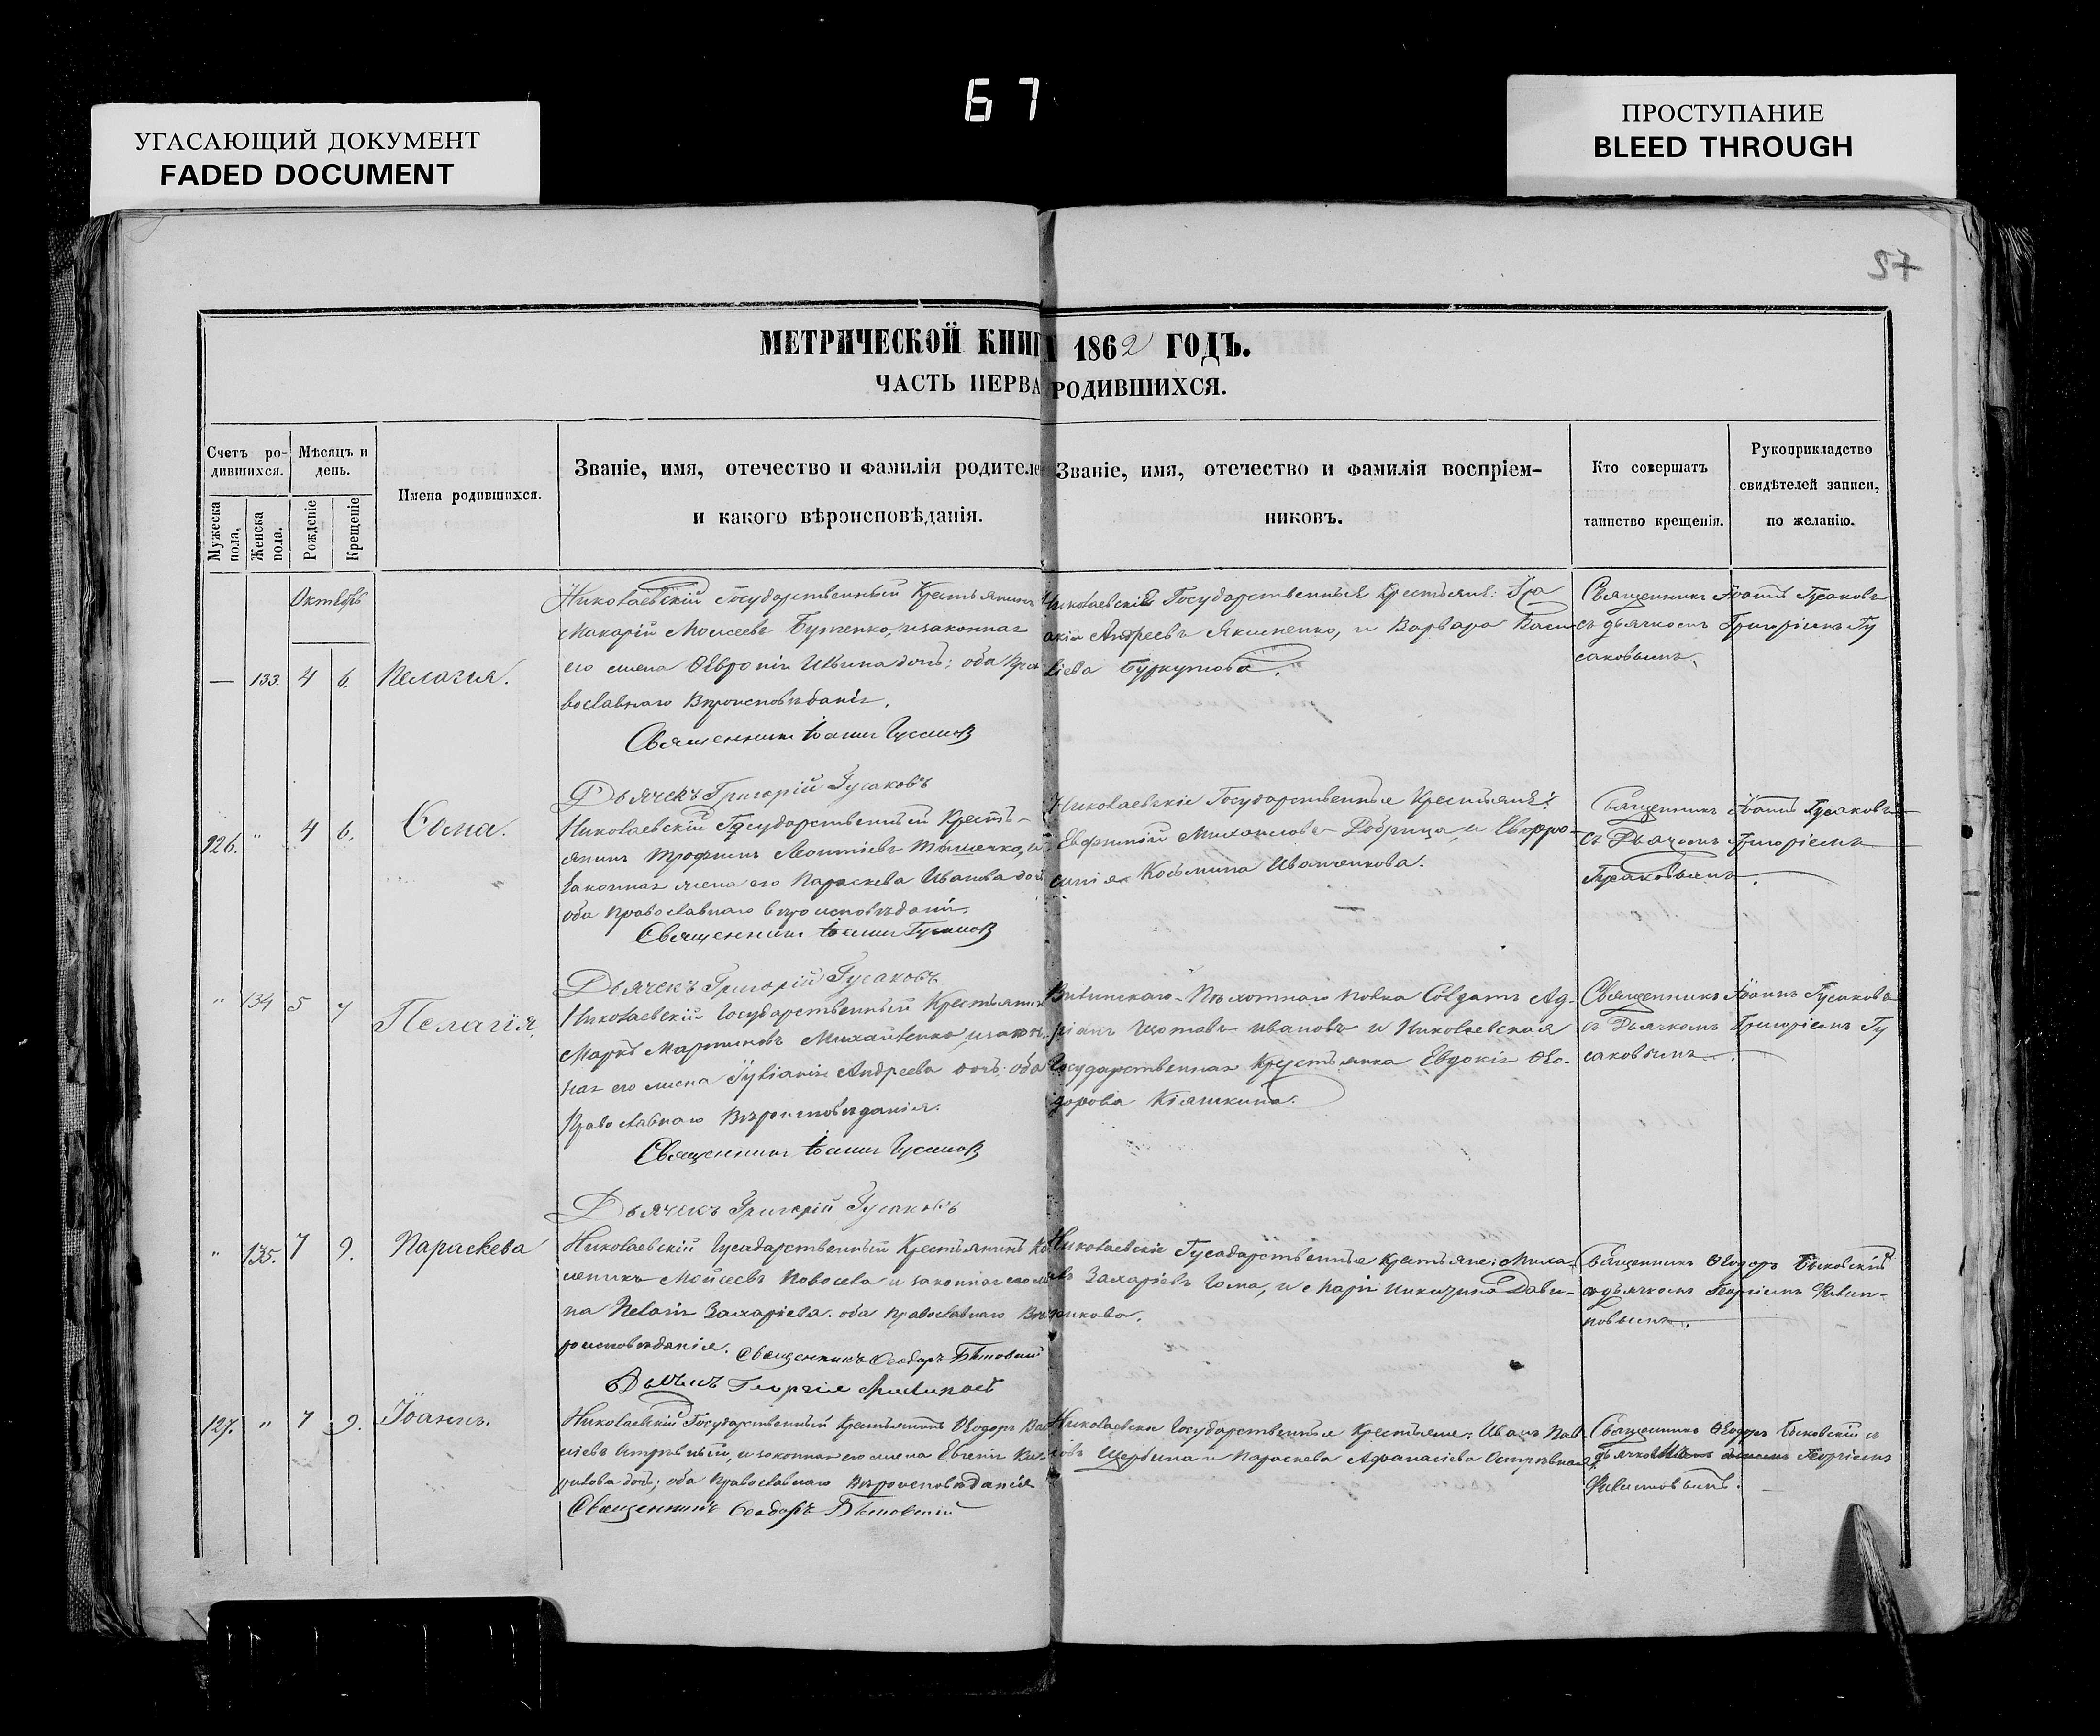 67
УГАСАЮЩИЙ ДОКУМЕНТ
FADED DOCUMENT
ПРОСТУПАНИЕ
BLEED THROUGH
57
МЕТРИЧЕСКОЙ КНИГ 1862 ГОДЪ.
ЧАСТЬ ПЕРВА РОДИВШИХСЯ.
Счетъ ро-
дившихся.
Мужеска пола,
Женска пола.
Мѣсяцъ и
день.
Рожденіе
Крещеніе
Имена родившихся.
Званіе, имя, отечество и фамилія родителе
и какого вѣроисповѣданія.
Званіе, имя, отечество и фамилія воспріем-
никовъ.
Кто совершатъ
таинство крещенія.
Рукоприкладство
свидѣтелей записи,
по желанію.
Октябрь
— 133. 4 6. Пелагія.
Николаевскій Государственный Крестьянинъ
Макарій Моисеевъ Бутенко, и законная
его жена Ѳевронія Ильина дочь; оба Пра
вославнаго Вѣроисповѣданія.
Священникъ Іоаннъ Гусаковъ
Дьячекъ Григорій Гусаковъ
Николаевскіе Государственные Крестьяне: Ира
акій Андреевъ Якименко, и Варвара Васи
ліева Буркутова.
Священникъ Іоаннъ Гусаковъ
съ дьячкомъ Григоріемъ Гу
саковымъ.
126. " 4 6. Ѳома.
Николаевскій Государственный Кресть-
янинъ Трофимъ Леонтіевъ и
законная жена его Параскева Иванова доч
оба православнаго вѣроисповѣданія.
Священникъ Іоаннъ Гусаковъ
Дьячекъ Григорій Гусаковъ
Николаевскіе Государственные Крестьяне:
Евфимій Михайловъ Добрица, и Евфро-
синія Козьмина Иванченкова.
Священникъ Іоаннъ Гусаковъ
съ Дьячкомъ Григоріемъ
Гусаковымъ.
" 134 5 7 Пелагія.
Николаевскій Государственный Крестьянинъ
Маркъ Мартиновъ Михайленко, и закон
ная его жена Іуліанія Андреева дочь: оба
Православнаго Вѣроисповѣданія.
Священникъ Іоаннъ Гусаковъ
Дьячекъ Григорій Гусаковъ
Виленскаго Пѣхотнаго полка Солдатъ Ад-
ріанъ Ивановъ и Николаевская
Государственная Крестьянка Евдокія Ѳео-
дорова Кіяшкина.
Священникъ Іоаннъ Гусаковъ
съ Дьячкомъ Григоріемъ Гу
саковымъ.
" 135. 7 9. Параскева
Николаевскій Государственный Крестьянинъ
Моисеевъ и законная его
на Пелагія Захаріева. оба православнаго Вѣ
роисповѣданія. Священникъ Ѳеодоръ Быковскій
Георгій
Николаевскіе Государственные Крестьяне: Миха-
Захаріевъ и Марія Никитина Дави-
Священникъ Ѳеодоръ Быковскій
съ дьячкомъ Георгіемъ Филип-
повымъ.
127. " 7 9. Іоаннъ.
Николаевскій Государственный Крестьянинъ Ѳеодоръ Вас
иліевъ и законная его жена Евгенія Ки-
рилова дочь; оба Православнаго Вѣроисповѣданія
Священникъ Ѳеодоръ Быковскій
Николаевскіе Государственные Крестьяне: Иванъ Пав-
ловъ Щербина и Параскева Афанасіева
Священникъ Ѳеодоръ Быковскій съ
Георгіемъ
Филиповымъ.